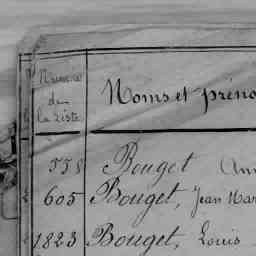 Numéro
de
la Liste
Noms et préno
558 Bouget Ann
605 Bouget, Jean Mar
1823 Bouget, Louis